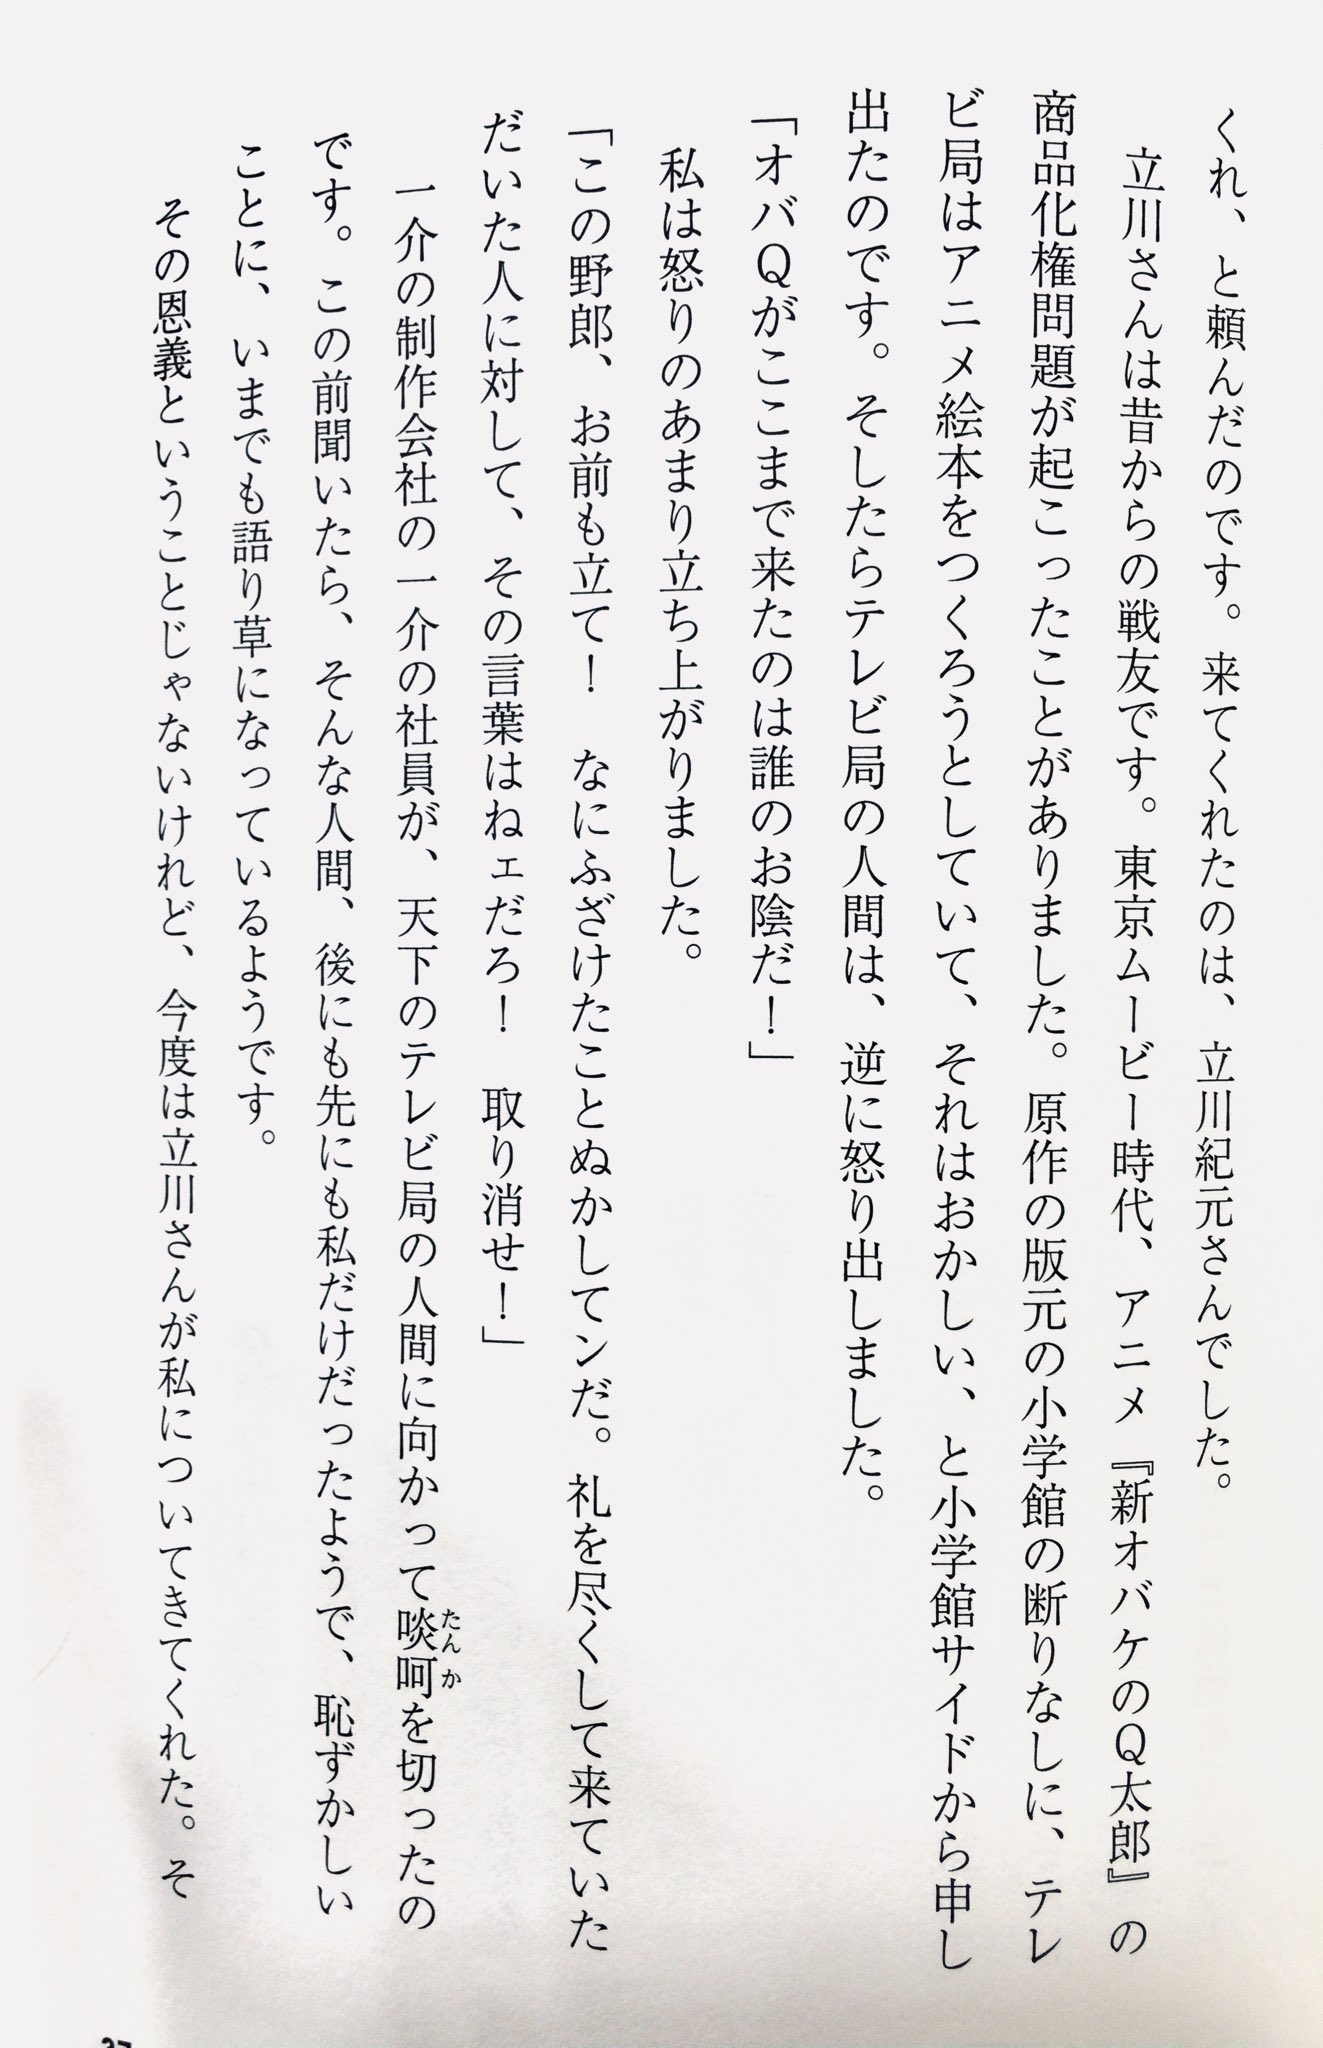 くれ、と頼んだのです。来てくれたのは、立川紀元さんでした。
立川さんは昔からの戦友です。東京ムービー時代、アニメ『新オバケのＱ太郎』の
商品化権問題が起こったことがありました。原作の版元の小学館の断りなしに、テレ
ビ局はアニメ絵本をつくろうとしていて、それはおかしい、と小学館サイドから申し
出たのです。そしたらテレビ局の人間は、逆に怒り出しました。
「オバＱがここまで来たのは誰のお陰だ！」
私は怒りのあまり立ち上がりました。
「この野郎、お前も立て！　なにふざけたことぬかしてンだ。礼を尽くして来ていた
だいた人に対して、その言葉はねェだろ！　取り消せ！」
一介の制作会社の一介の社員が、天下のテレビ局の人間に向かって啖呵を切ったの
たんか
です。この前聞いたら、そんな人間、後にも先にも私だけだったようで、恥ずかしい
ことに、いまでも語り草になっているようです。
その恩義ということじゃないけれど、今度は立川さんが私についてきてくれた。そ